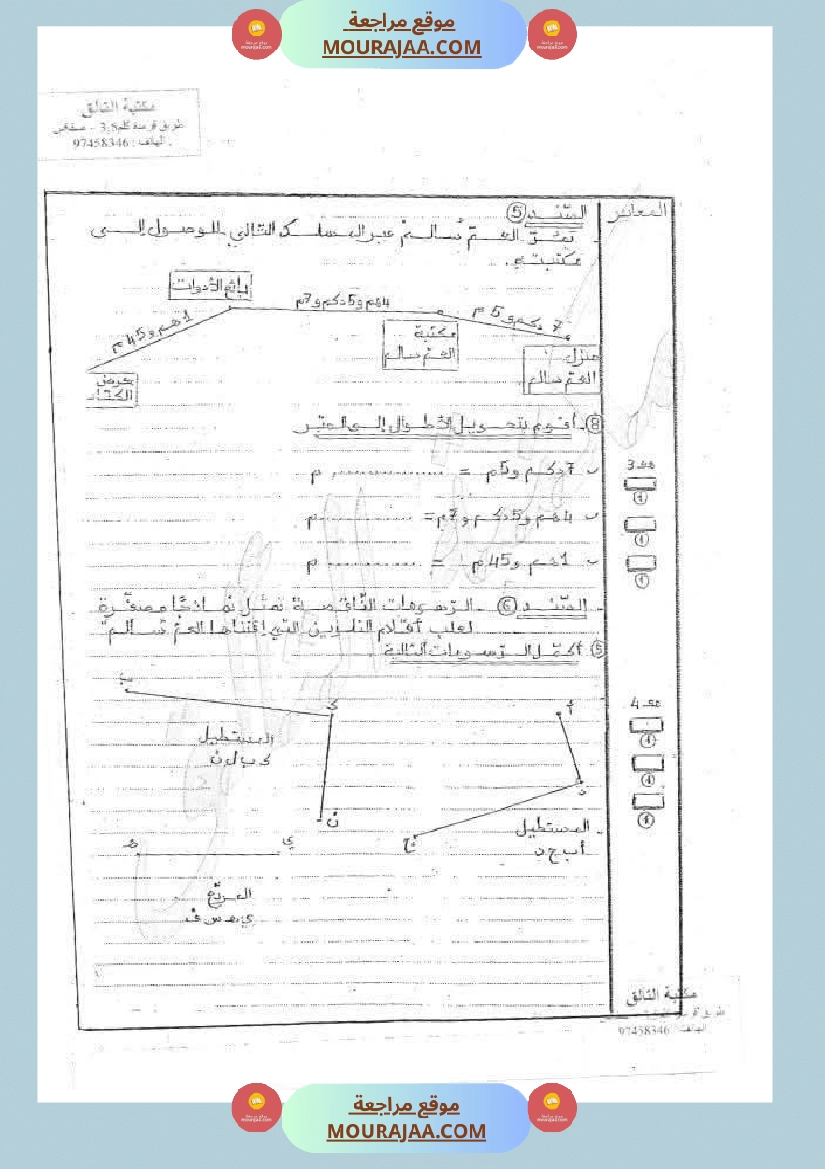 موقع مراجعة
MOURAJAA.COM
مكتبة التالق
طريق قرمدة كلم 3,5 - صفاقس
الهاتف : 97458346
المعايير
السّند ⑤
تنقّل العمّ سالم عبر المسلك التالي للوصول إلى
مكتبته.
بائع الأدوات
4هم و5دكم و7م
7 دكم و 5م
1هم و 45م
مكتبة
العمّ سالم
منزل
العمّ سالم
معرض
الكتاب
⑧ـ أقوم بتحويل الأطوال إلى المتر
7دكم و5م = .................. م
مع 3
4هم و5دكم و7م = ............ م
1هم و45م = .............. م
السّند ⑥ ـ الرّسومات النّاقصة تمثّل نماذجا مصغّرة
لعلب أقلام التلوين التي اقتناها العمّ سالم
⑨ أكمل الرّسومات التالية
مع 4
ب
ك
أ
المستطيل
ك ب ل ن
د
ن
ج
المستطيل
أ ب ج د
ه
ي
المربّع
ي ه س ف
مكتبة التالق
الهاتف : 97458346
موقع مراجعة
MOURAJAA.COM